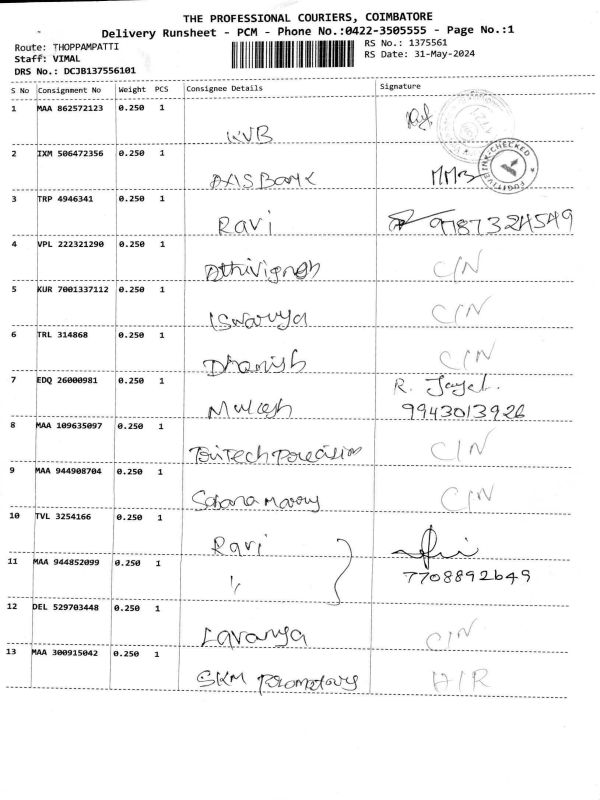 THE PROFESSIONAL COURIERS, COIMBATORE
Delivery Runsheet - PCM - Phone No.:0422-3505555 - Page No.:1
Route: THOPPAMPATTI RS No.: 1375561
Staff: VIMAL RS Date: 31-May-2024
DRS No.: DCJB137556101
S No Consignment No Weight PCS Consignee Details Signature
1 MAA 862572123 0.250 1
KVB
2 IXM 506472356 0.250 1
AXIS Bank
3 TRP 4946341 0.250 1
Ravi 9787324549
4 VPL 222321290 0.250 1
Athivignesh C/N
5 KUR 7001337112 0.250 1
Iswarya C/N
6 TRL 314868 0.250 1
Dhanish C/N
7 EDQ 26000981 0.250 1 R.
Mukesh 9943013926
8 MAA 109635097 0.250 1
TriTech Precision C/N
9 MAA 944908704 0.250 1
C/N
10 TVL 3254166 0.250 1
Ravi
11 MAA 944852099 0.250 1 7708892649
12 DEL 529703448 0.250 1
Lavanya C/N
13 MAA 300915042 0.250 1
SKM H/R